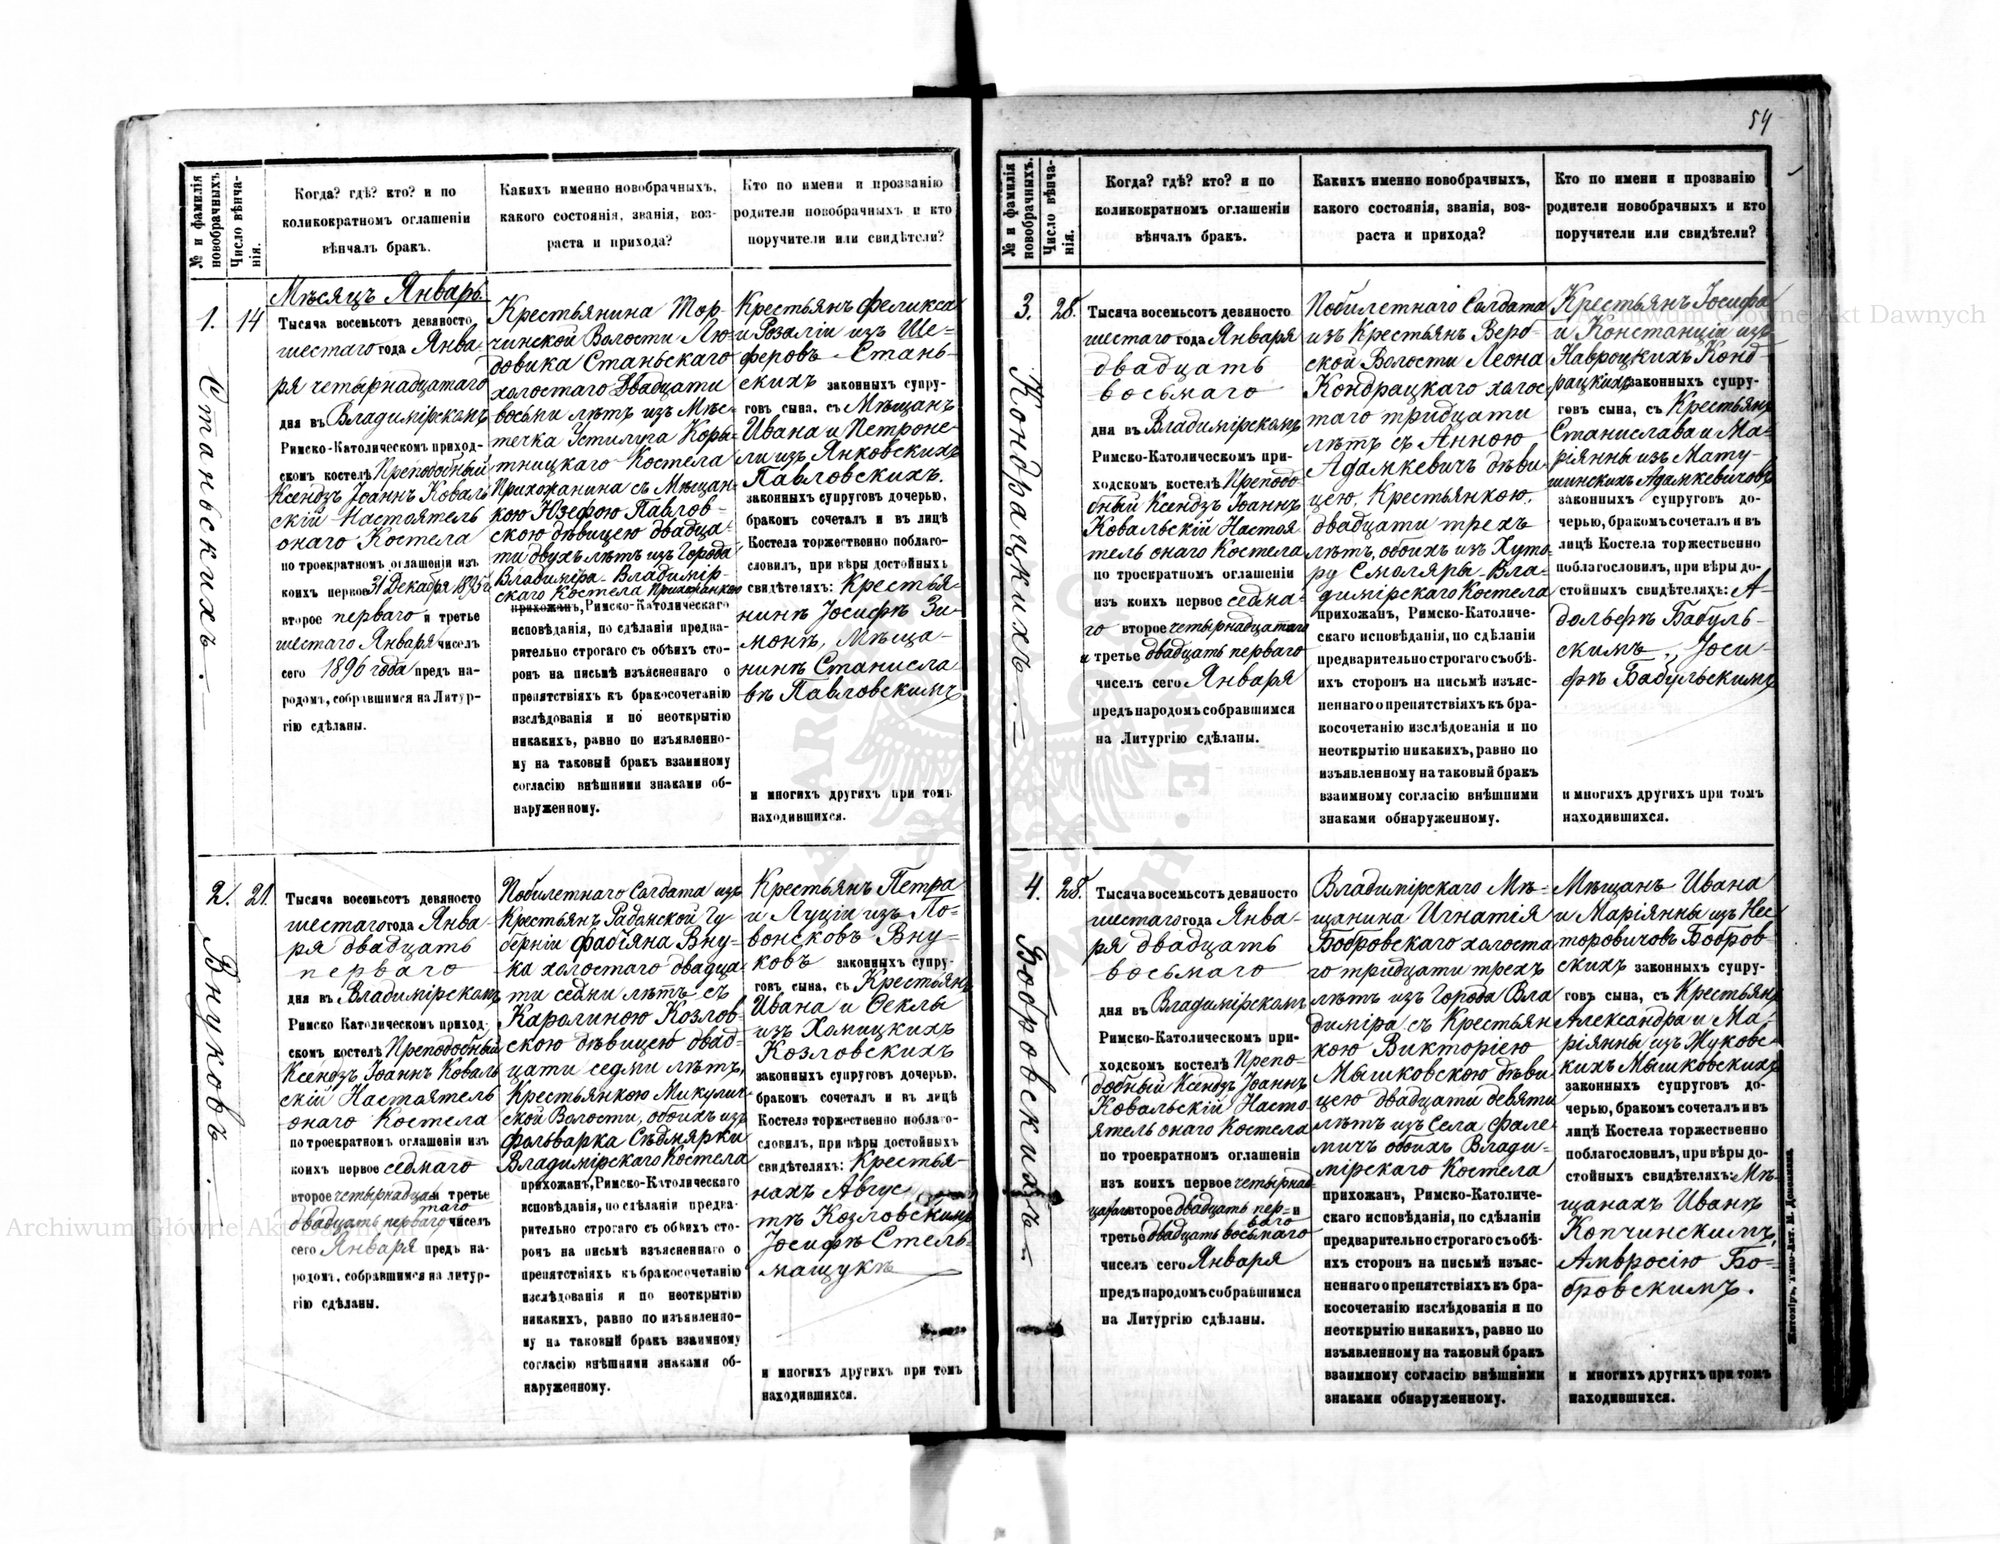 54
№ и фамилія новобрачныхъ
Число вѣнчанія.
Когда? гдѣ? кто? и по
коликократномъ оглашеніи
вѣнчалъ бракъ.
Какихъ именно новобрачныхъ,
какого состоянія, званія, воз-
раста и прихода?
Кто по имени и прозванію
родители новобрачныхъ и кто
поручители или свидѣтели?
1.
14
Станьскихъ.
Мѣсяцъ Январь
Тысяча восемьсотъ девяносто
шестаго года Янва-
ря четырнадцатаго
дня въ Владимірскомъ
Римско-Католическомъ приход-
скомъ костелѣ Преподобный
Ксендзъ Іоаннъ Коваль
скій Настоятель
онаго Костела
по троекратномъ оглашеніи изъ
коихъ первое 31 Декабря 1895 г.
второе перваго и третье
шестаго Января чиселъ
сего 1896 года предъ на-
родомъ, собравшимся на Литур-
гію сдѣланы.
Крестьянина Тор-
чинской Волости Лю-
довика Станьскаго
холостаго двадцати
восьми лѣтъ изъ Мѣс-
течка Устилуга Коры-
тницкаго Костела
Прихожанина съ Мѣщан-
кою Юзефою Павлов-
скою дѣвицею двадца-
ти двухъ лѣтъ изъ Города
Владиміра-Владимір-
скаго Костела Прихожанкою
прихожанъ, Римско-Католическаго
исповѣданія, по сдѣланіи предва-
рительно строгаго съ обѣихъ сто-
ронъ на письмѣ изъясненнаго о
препятствіяхъ къ бракосочетанію
изслѣдованія и по неоткрытію
никакихъ, равно по изъявленно-
му на таковый бракъ взаимному
согласію внѣшними знаками об-
наруженному.
Крестьянъ Феликса
и Розаліи изъ Ше-
феровъ Стань-
скихъ законныхъ супру-
говъ сына, съ Мѣщанъ
Ивана и Петроне-
ли изъ Янковскихъ
Павловскихъ.
законныхъ супруговъ дочерью,
бракомъ сочеталъ и въ лицѣ
Костела торжественно поблаго-
словилъ, при вѣры достойныхъ
свидѣтеляхъ: Крестья-
нинѣ Іосифѣ Зи-
монѣ, Мѣща-
нинѣ Станисла
вѣ Павловскимъ
и многихъ другихъ при томъ
находившихся.
2.
21.
Внуковъ.
Тысяча восемьсотъ девяносто
шестаго года Янва-
ря двадцать
перваго
дня въ Владимірскомъ
Римско Католическомъ приход-
скомъ костелѣ Преподобный
Ксендзъ Іоаннъ Коваль
скій Настоятель
онаго Костела
по троекратномъ оглашеніи изъ
коихъ первое седмаго
второе четырнадцатаго и третье
двадцать перваго чиселъ
сего Января предъ на-
родомъ, собравшимся на литур-
гію сдѣланы.
Побилетнаго Солдата изъ
Крестьянъ Радомской Гу
берніи Фабіяна Вну-
ка холостаго двадца-
ти седми лѣтъ съ
Каролиною Козлов-
скою дѣвицею двад-
цати седми лѣтъ,
Крестьянкою Микулич-
ской Волости, обоихъ изъ
фольварка Сѣдмярки
Владимірскаго Костела
прихожанъ, Римско-Католическаго
исповѣданія, по сдѣланіи предва-
рительно строгаго съ обѣихъ сто-
ронъ на письмѣ изъясненнаго о
препятствіяхъ къ бракосочетанію
изслѣдованія и по неоткрытію
никакихъ, равно по изъявленно-
му на таковый бракъ взаимному
согласію внѣшними знаками об-
наруженному.
Крестьянъ Петра
и Луціи изъ По-
вонсковъ Вну-
ковъ законныхъ супру-
говъ сына, съ Крестьянъ
Ивана и Феклы
изъ Хомицкихъ
Козловскихъ
законныхъ супруговъ дочерью,
бракомъ сочеталъ и въ лицѣ
Костела торжественно поблаго-
словилъ, при вѣры достойныхъ
свидѣтеляхъ: Крестья-
нахъ Авгус-
тѣ Козловскимъ
Іосифѣ Стель-
мащукѣ
и многихъ другихъ при томъ
находившихся.
№ и фамилія новобрачныхъ.
Число вѣнчанія.
Когда? гдѣ? кто? и по
коликократномъ оглашеніи
вѣнчалъ бракъ.
Какихъ именно новобрачныхъ,
какого состоянія, званія, воз-
раста и прихода?
Кто по имени и прозванію
родители новобрачныхъ и кто
поручители или свидѣтели?
3.
28.
Кондрацкихъ.
Тысяча восемьсотъ девяносто
шестаго года Января
двадцать
восьмаго
дня въ Владимірскомъ
Римско-Католическомъ при-
ходскомъ костелѣ Преподо-
бный Ксендзъ Іоаннъ
Ковальскій Настоя
тель онаго Костела
по троекратномъ оглашеніи
изъ коихъ первое седма-
го второе четырнадцатаго
и третье двадцать перваго
чиселъ сего Января
предъ народомъ собравшимся
на Литургію сдѣланы.
Побилетнаго Солдата
изъ Крестьянъ Веро-
ской Волости Леона
Кондрацкаго холос-
таго тридцати
лѣтъ съ Анною
Адамкевичъ дѣви-
цею, Крестьянкою,
двадцати трехъ
лѣтъ, обоихъ изъ Хуто-
ру Смоляры-Вла-
димірскаго Костела
прихожанъ, Римско-Католиче-
скаго исповѣданія, по сдѣланіи
предварительно строгаго съ обѣ-
ихъ сторонъ на письмѣ изъяс-
неннаго о препятствіяхъ къ бра-
косочетанію изслѣдованія и по
неоткрытію никакихъ, равно по
изъявленному на таковый бракъ
взаимному согласію внѣшними
знаками обнаруженному.
Крестьянъ Іосифа
и Констанціи изъ
Навроцкихъ Конд-
рацкихъ законныхъ супру-
говъ сына, съ Крестьянъ
Станислава и Ма-
ріянны изъ Мату-
шинскихъ Адамкевичовъ
законныхъ супруговъ до-
черью, бракомъ сочеталъ и въ
лицѣ Костела торжественно
поблагословилъ, при вѣры до-
стойныхъ свидѣтеляхъ: А-
дольфѣ Бабуль-
скимъ, Іоси-
фѣ Бабульскимъ
и многихъ другихъ при томъ
находившихся.
4.
28.
Бобровскихъ
Тысяча восемьсотъ девяносто
шестаго года Янва-
ря двадцать
восьмаго
дня въ Владимірскомъ
Римско-Католическомъ при-
ходскомъ костелѣ Препо-
добный Ксендзъ Іоаннъ
Ковальскій Насто-
ятель онаго Костела
по троекратномъ оглашеніи
изъ коихъ первое четырнад
цатаго второе двадцать пер- и
ваго
третье двадцать восьмаго
чиселъ сего Января
предъ народомъ собравшимся
на Литургію сдѣланы.
Владимірскаго Мѣ-
щанина Игнатія
Бобровскаго холоста
го тридцати трехъ
лѣтъ изъ Города Вла
диміра съ Крестьян
кою Викторіею
Мышковскою дѣви
цею двадцати девяти
лѣтъ изъ Села Фале-
мичъ обоихъ Влади-
мірскаго Костела
прихожанъ, Римско-Католиче-
скаго исповѣданія, по сдѣланіи
предварительно строгаго съ обѣ-
ихъ сторонъ на письмѣ изъяс-
неннаго о препятствіяхъ къ бра-
косочетанію изслѣдованія и по
неоткрытію никакихъ, равно по
изъявленному на таковый бракъ
взаимному согласію внѣшними
знаками обнаруженному.
Мѣщанъ Ивана
и Маріянны изъ Нес
торовичовъ Бобров
скихъ законныхъ супру-
говъ сына, съ Крестьянъ
Александра и Ма-
ріянны изъ Жуковс-
кихъ Мышковскихъ
законныхъ супруговъ до-
черью, бракомъ сочеталъ и въ
лицѣ Костела торжественно
поблагословилъ, при вѣры до-
стойныхъ свидѣтеляхъ: Мѣ-
щанахъ Иванѣ
Копчинскимъ,
Амвросію Бо-
бровскимъ.
и многихъ другихъ при томъ
находившихся.
Житомiръ, Типо-Лит. М. Дененмана.
Archiwum Główne Akt Dawnych
Archiwum Główne Akt Dawnych